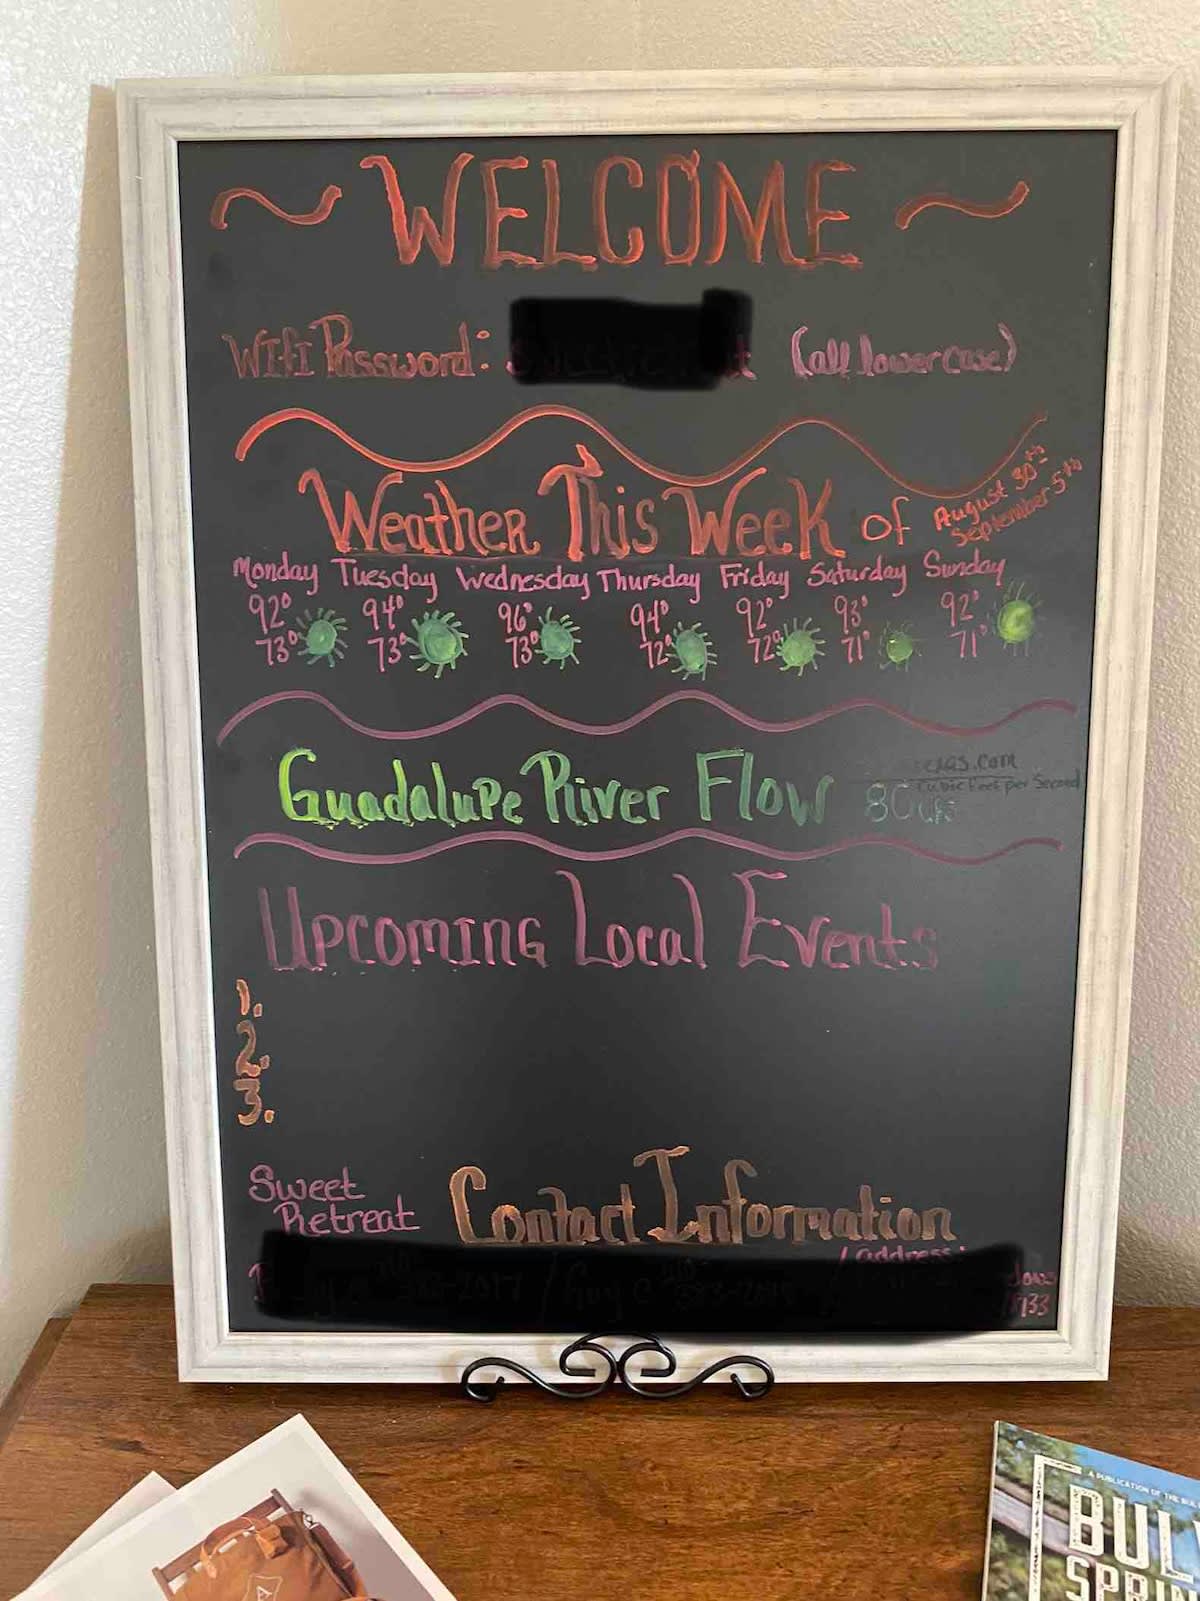 ~ WELCOME ~
Wifi Password: (all lower case)
Weather This Week of August 30th
September 5th
Monday Tuesday Wednesday Thursday Friday Saturday Sunday
92° 94° 96° 94° 92° 93° 92°
73° 73° 73° 72° 72° 71° 71°
Guadalupe River Flow 80 cfs
Cubic Feet per Second
Upcoming Local Events
1.
2.
3.
Sweet
Retreat
Contact Information
/address:
A PUBLICATION OF THE
A